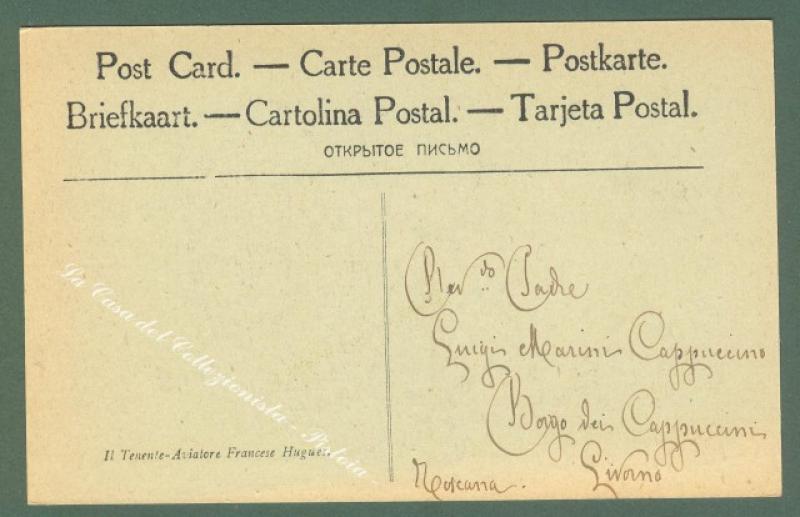 Post Card. — Carte Postale. — Postkarte.
Briefkaart. — Cartolina Postal. — Tarjeta Postal.
ОТКРЫТОЕ ПИСЬМО
La Casa del Collezionista - Pistoia
Il Tenente-Aviatore Francese Hugues
Rev.do Padre
Luigi Marini Cappuccino
Borgo dei Cappuccini
Livorno
Toscana.